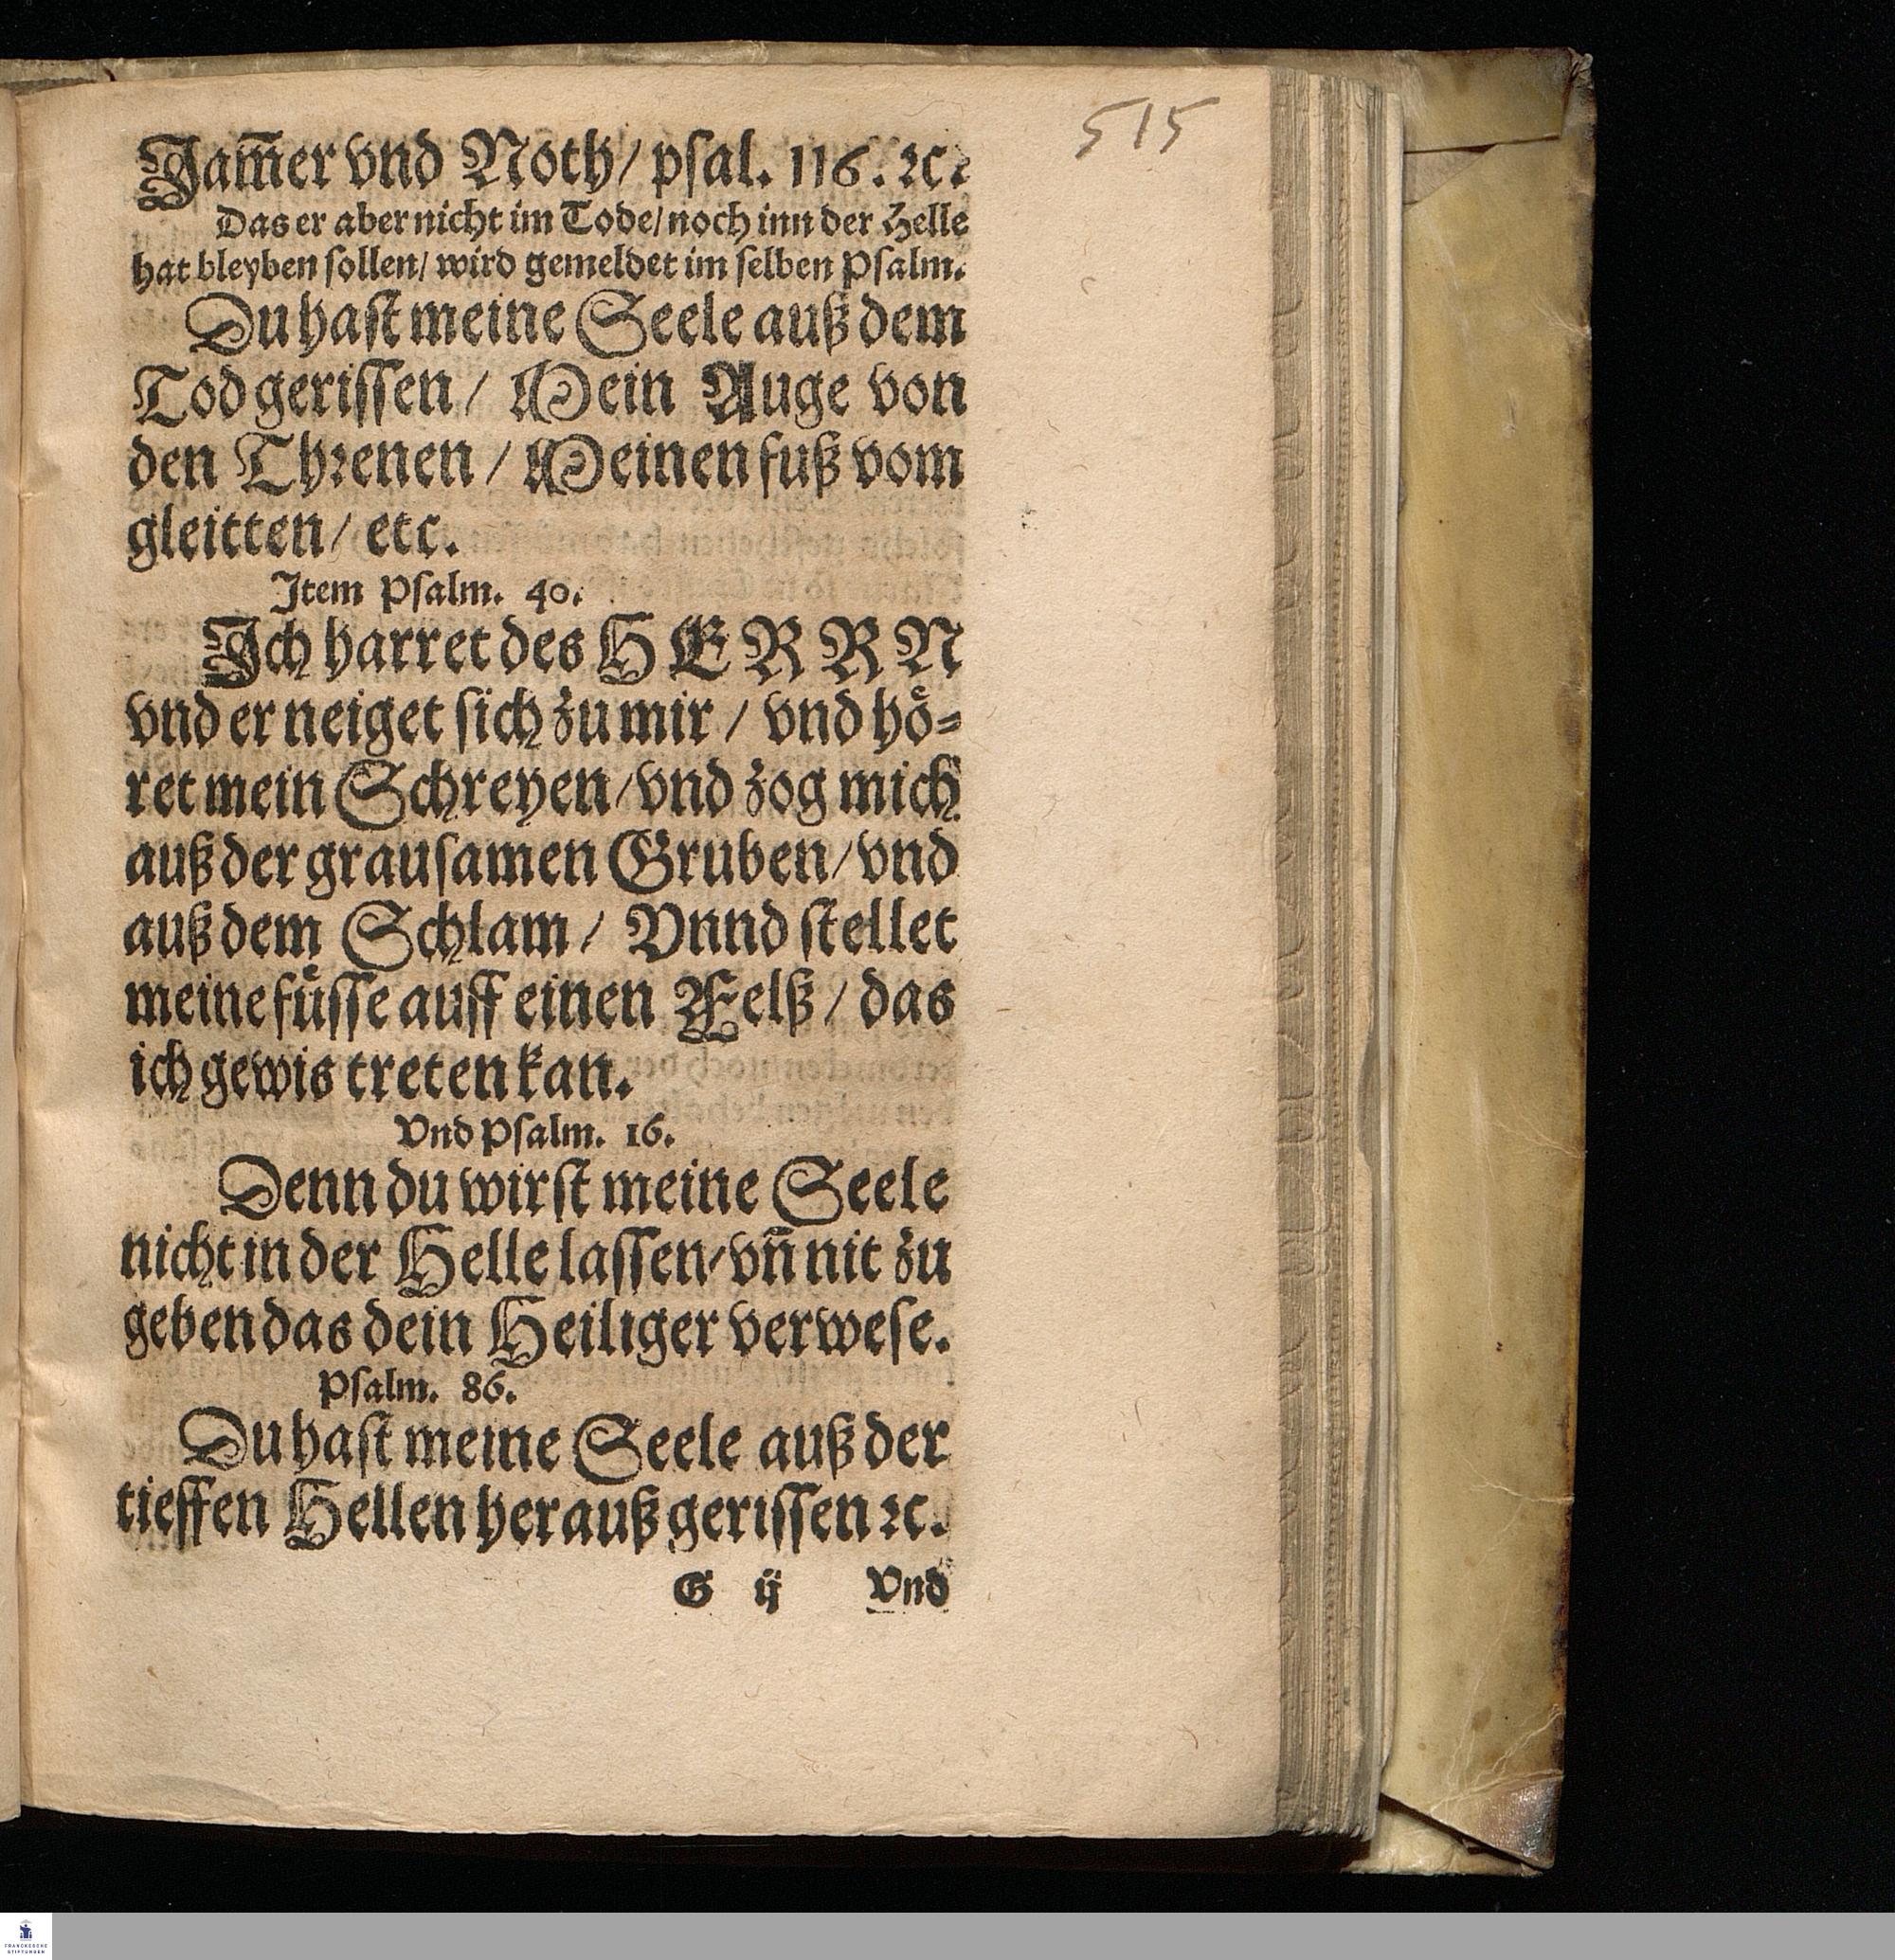 515
Jam̃er vnd Noth / psal. 116. ꝛc.
Das er aber nicht im Tode / noch inn der Helle
hat bleyben sollen / wird gemeldet im selben Psalm.
Du hast meine Seele auß dem
Tod gerissen / Mein Auge von
den Thꝛenen / Meinen fuß vom
gleitten / etc.
Item Psalm. 40.
Ich harret des HERRN
vnd er neiget sich zu mir / vnd hoͤ-
ret mein Schreyen / vnd zog mich
auß der grausamen Gruben / vnd
auß dem Schlam / Vnnd stellet
meine fuͤsse auff einen Felß / das
ich gewis treten kan.
Vnd Psalm. 16.
Denn du wirst meine Seele
nicht in der Helle lassen / vñ nit zu
geben das dein Heiliger verwese.
Psalm. 86.
Du hast meine Seele auß der
tieffen Hellen herauß gerissen ꝛc.
G ij Vnd
FRANCKESCHE
STIFTUNGEN